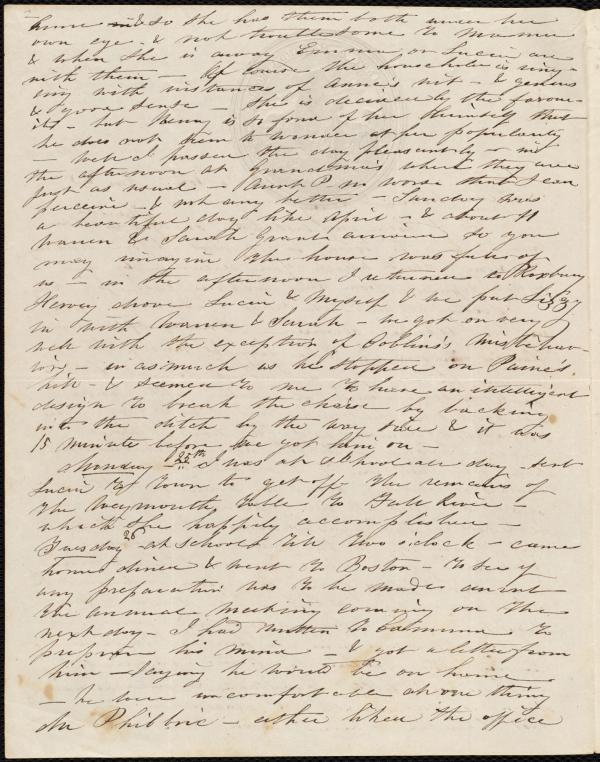 home & so she has them both under her
own eye & not troublesome to Mamma
& when she is away Emma or Lucia are
with them — Of course the household is ring-
ing with instances of Annie's wit — & genius
& good sense — She is decidedly the favour-
ite — but Henry is so fond of her himself that
he does not seem to wonder at her popularity
— well I passed the day pleasantly — in
the afternoon at Grandma's where they were
just as usual — Aunt P. no worse that I can
perceive — & not any better — Sunday was
a beautiful day like April — & about 11
Warren & Sarah Grant arrived so you
may imagine the house was full of
us — in the afternoon I returned to Roxbury
Hervey drove Lucia & Myself & we put Lizzy
in with Warren & Sarah — we got on very
well with the exception of Goblin's misbehav-
ior — in as much as he stopped on Paine's
hill — & seemed to me to have an intelligent
design to break the chaise by backing
into the ditch by the way side & it was
15 minutes before we got him on —
Monday 25th I was at School all day — sent
Lucia to town to get off the remains of
the Weymouth table to Fall River —
which she happily accomplished —
Tuesday 26 at school till two o'clock — came
home dined & went to Boston — to see if
any preparation was to be made anent
the annual meeting coming on the
next day — I had written to Edmund to
prepare his mind — & got a letter from
him — saying he would be on hand
— he was uncomfortable at one thing
Mr Philbric — either liked the office